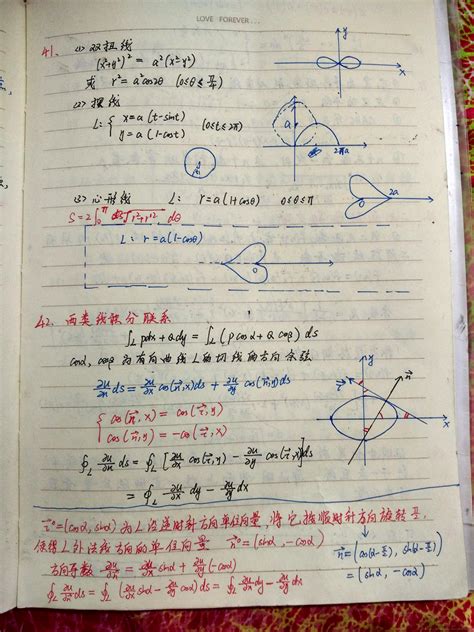 LOVE FOREVER...
41. (1) 双扭线
(x²+y²)² = a²(x²-y²)
或 r²=a²cos2θ (0≤θ≤π/4)
(2) 摆线
L: { x=a(t-sint)
y=a(1-cost) (0≤t≤2π)
y
x
a
2πa
(3) 心形线 L: r=a(1+cosθ) 0≤θ≤π
S=2∫₀^π √r²+r'² dθ
2a
0
L: r=a(1-cosθ)
0
42. 两类线积分联系
∫_L pdx+Qdy = ∫_L (pcosα+Qcosβ)ds
cosα, cosβ 为有向曲线L的切线的方向余弦
∂u/∂n ds = ∂u/∂x cos(n⃗,x)ds + ∂u/∂y cos(n⃗,y)ds
{ cos(n⃗,x) = cos(τ⃗,y)
cos(n⃗,y) = -cos(τ⃗,x)
∮_L ∂u/∂n ds = ∮_L [∂u/∂x cos(τ⃗,y) - ∂u/∂y cos(τ⃗,x)]ds
= ∮_L ∂u/∂x dy - ∂u/∂y dx
y
τ⃗
n⃗
x
τ⃗⁰=(cosα, sinα) 为L沿逆时针方向单位向量,将它按顺时针方向旋转π/2,
便得L外法线方向的单位向量 n⃗⁰=(sinα, -cosα)
n⃗⁰=(cos(α-π/2), sin(α-π/2))
=(sinα, -cosα)
方向导数 ∂u/∂n = ∂u/∂x sinα + ∂u/∂y (-cosα)
∮_L ∂u/∂n ds = ∮_L (∂u/∂x sinα - ∂u/∂y cosα)ds = ∮_L ∂u/∂x dy - ∂u/∂y dx